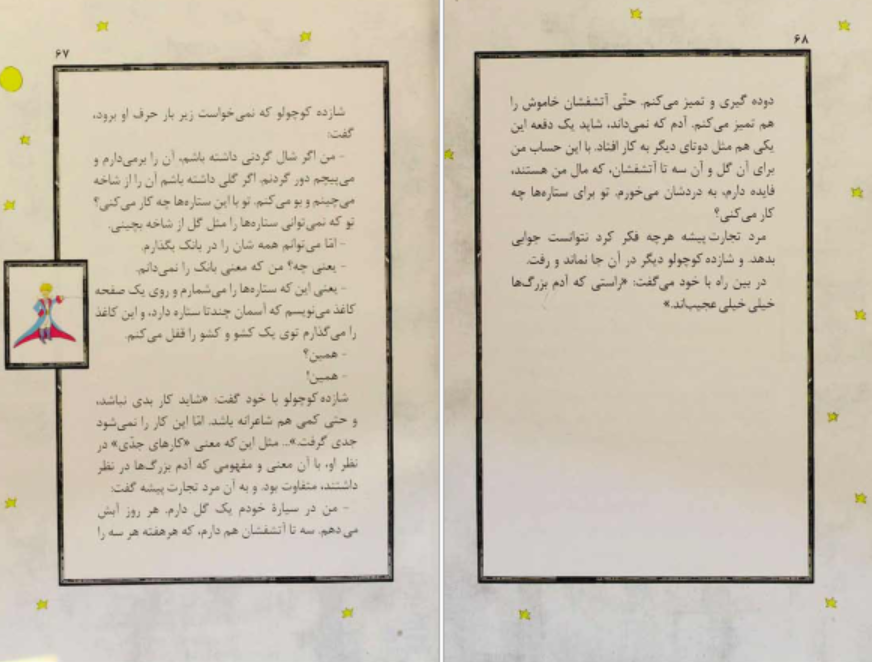 ۶۷
شازده کوچولو که نمی‌خواست زیر بار حرف او برود،
گفت:
- من اگر شال گردنی داشته باشم، آن را برمی‌دارم و
می‌پیچم دور گردنم. اگر گلی داشته باشم آن را از شاخه
می‌چینم و بو می‌کنم. تو با این ستاره‌ها چه کار می‌کنی؟
تو که نمی‌توانی ستاره‌ها را مثل گل از شاخه بچینی.
- امّا می‌توانم همه شان را در بانک بگذارم.
- یعنی چه؟ من که معنی بانک را نمی‌دانم.
- یعنی این که ستاره‌ها را می‌شمارم و روی یک صفحه
کاغذ می‌نویسم که آسمان چندتا ستاره دارد، و این کاغذ
را می‌گذارم توی یک کشو و کشو را قفل می‌کنم.
- همین؟
- همین!
شازده کوچولو با خود گفت: «شاید کار بدی نباشد،
و حتی کمی هم شاعرانه باشد. امّا این کار را نمی‌شود
جدی گرفت.».. مثل این که معنی «کارهای جدّی» در
نظر او، با آن معنی و مفهومی که آدم بزرگ‌ها در نظر
داشتند، متفاوت بود. و به آن مرد تجارت پیشه گفت:
- من در سیارهٔ خودم یک گل دارم. هر روز آبش
می‌دهم. سه تا آتشفشان هم دارم، که هرهفته هر سه را
۶۸
دوده گیری و تمیز می‌کنم. حتّی آتشفشان خاموش را
هم تمیز می‌کنم. آدم که نمی‌داند، شاید یک دفعه این
یکی هم مثل دوتای دیگر به کار افتاد. با این حساب من
برای آن گل و آن سه تا آتشفشان، که مال من هستند،
فایده دارم، به دردشان می‌خورم. تو برای ستاره‌ها چه
کار می‌کنی؟
مرد تجارت پیشه هرچه فکر کرد نتوانست جوابی
بدهد. و شازده کوچولو دیگر در آن جا نماند و رفت.
در بین راه با خود می‌گفت: «راستی که آدم بزرگ‌ها
خیلی خیلی عجیب‌اند.»